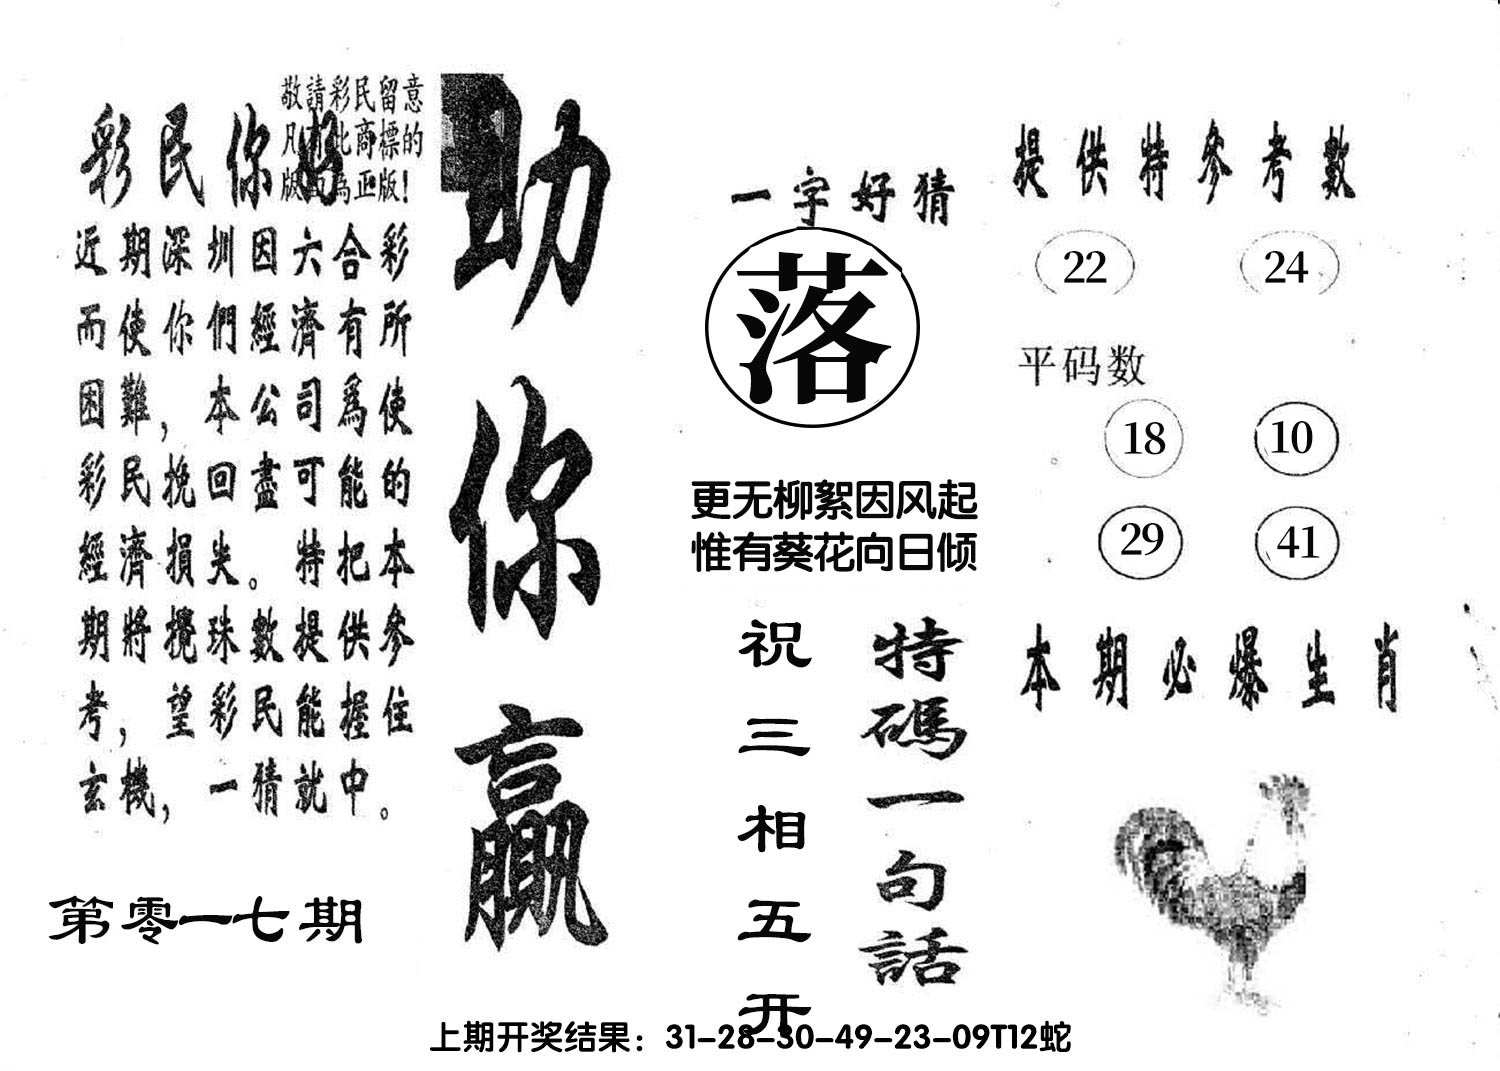 敬請彩民留意
凡有此商標的
版面為正版!
彩民你好
近期深圳因六合彩
而使你們經濟有所
困難，本公司爲使
彩民挽回盡可能的
經濟損失。特把本
期將攪珠數提供參
考，望彩民能握住
玄機，一猜就中。
第零一七期
助你贏
一字好猜
落
更无柳絮因风起
惟有葵花向日倾
特碼一句話
祝三相五开
提供特參考數
22 24
平码数
18 10
29 41
本期必爆生肖
上期开奖结果：31-28-30-49-23-09T12蛇